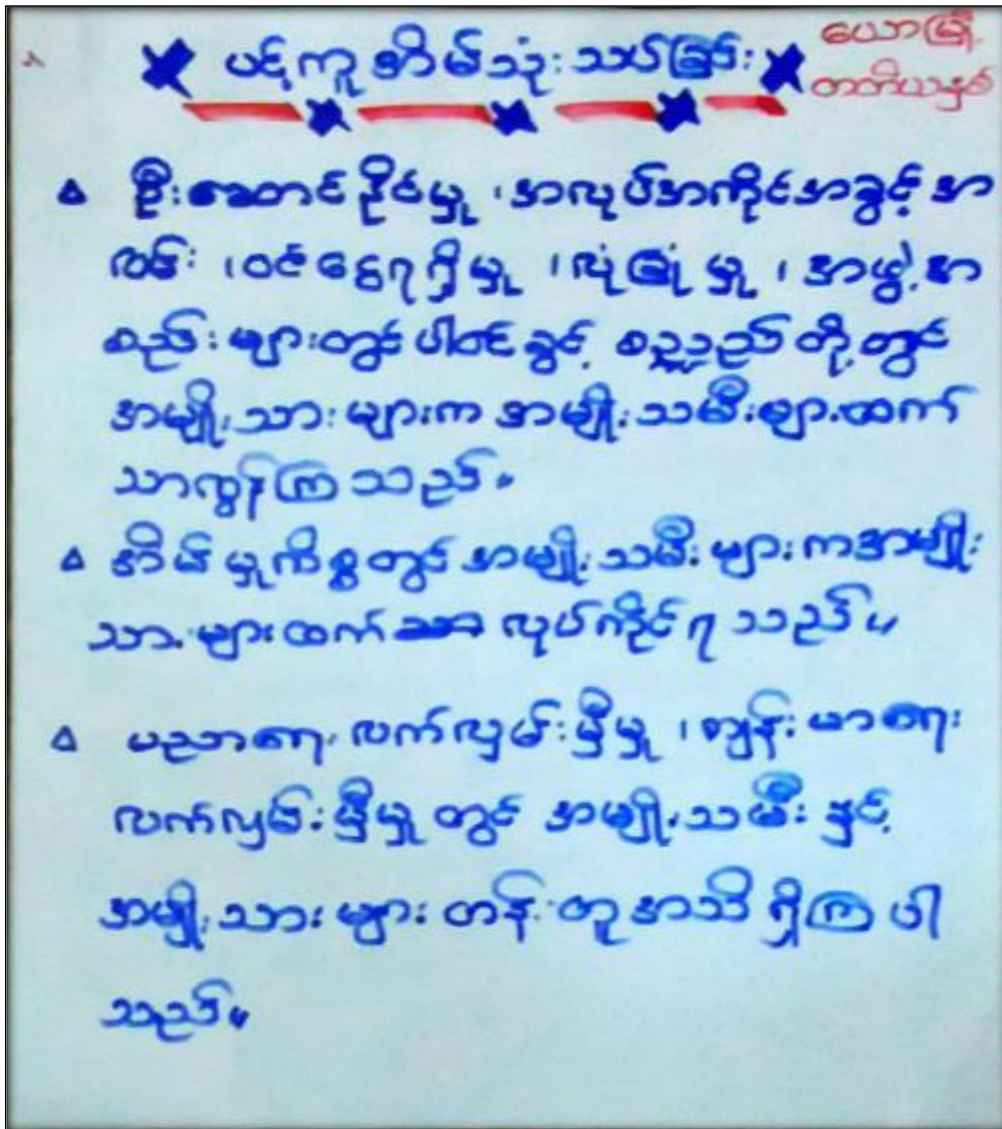 ပင့်ကူအိမ်သုံးသပ်ခြင်း
ယောမြို့
တတိယနှစ်
ဦးဆောင်နိုင်မှု၊ အလုပ်အကိုင်အခွင့်အ
လမ်း၊ ဝင်ငွေရရှိမှု၊ လုံခြုံမှု၊ အဖွဲ့အ
စည်းများတွင်ပါဝင်ခွင့် စသည်တို့တွင်
အမျိုးသားများက အမျိုးသမီးများထက်
သာလွန်ကြသည်။
အိမ်မှုကိစ္စတွင် အမျိုးသမီးများကအမျိုး
သားများထက် လုပ်ကိုင်ရသည်။
ပညာရေးလက်လှမ်းမှီမှု၊ ကျန်းမာရေး
လက်လှမ်းမှီမှုတွင် အမျိုးသမီးနှင့်
အမျိုးသားများ တန်းတူအသိရှိကြပါ
သည်။